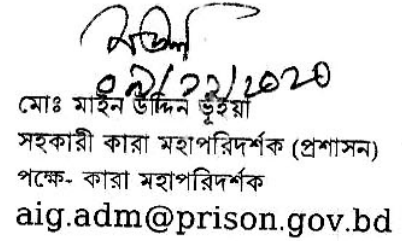 মোঃ মাইন উদ্দিন ভূইয়া
সহকারী কারা মহাপরিদর্শক (প্রশাসন)
পক্ষে- কারা মহাপরিদর্শক
aig.adm@prison.gov.bd